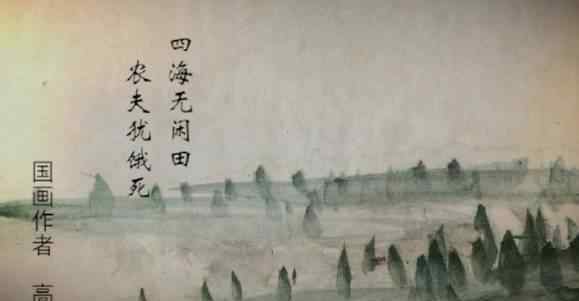 四海无闲田
农夫犹饿死
国画作者 高